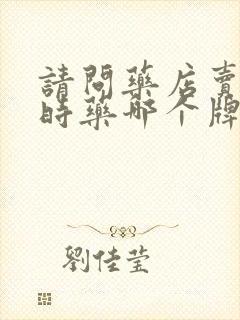 請問藥店賣
時藥哪个牌
劉佳莹